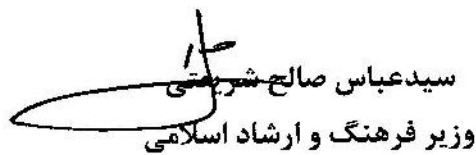 سیدعباس صالح شریعتی
وزیر فرهنگ و ارشاد اسلامی